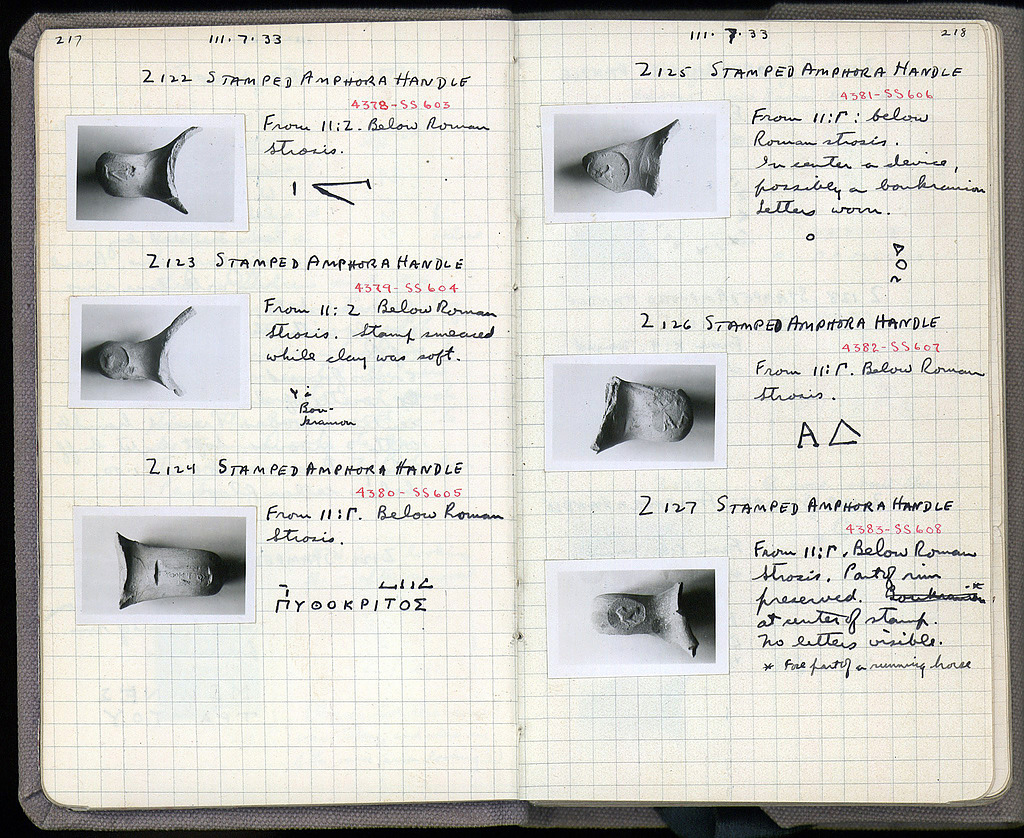 217
111.7.33
Z 122 STAMPED AMPHORA HANDLE
4378-SS 603
From 11:Z. Below Roman
strosis.
Z 123 STAMPED AMPHORA HANDLE
4379-SS 604
From 11:Z Below Roman
strosis. Stamp smeared
while clay was soft.
Bou-
kranion
Z 124 STAMPED AMPHORA HANDLE
4380-SS 605
From 11:Γ. Below Roman
strosis.
ΠΥΘΟΚΡΙΤΟΣ
111.7.33
218
Z 125 STAMPED AMPHORA HANDLE
4381-SS 606
From 11:Γ: below
Roman strosis.
In center a device,
possibly a boukranion
Letters worn.
Z 126 STAMPED AMPHORA HANDLE
4382-SS 607
From 11:Γ. Below Roman
strosis.
ΑΔ
Z 127 STAMPED AMPHORA HANDLE
4383-SS 608
From 11:Γ. Below Roman
strosis. Part of rim
preserved. Boukranion *
at center of stamp.
No letters visible.
* Fore part of a running horse